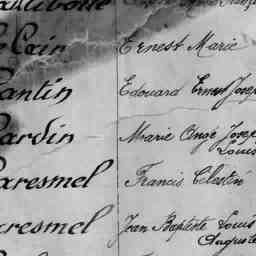 Le Cain Ernest Marie
Pantin Edouard Ernest Josep
Pardin Marie Ange Josep
Louis
aresmel Francis Célestin
aresmel Jean Baptiste Louis
Auguste